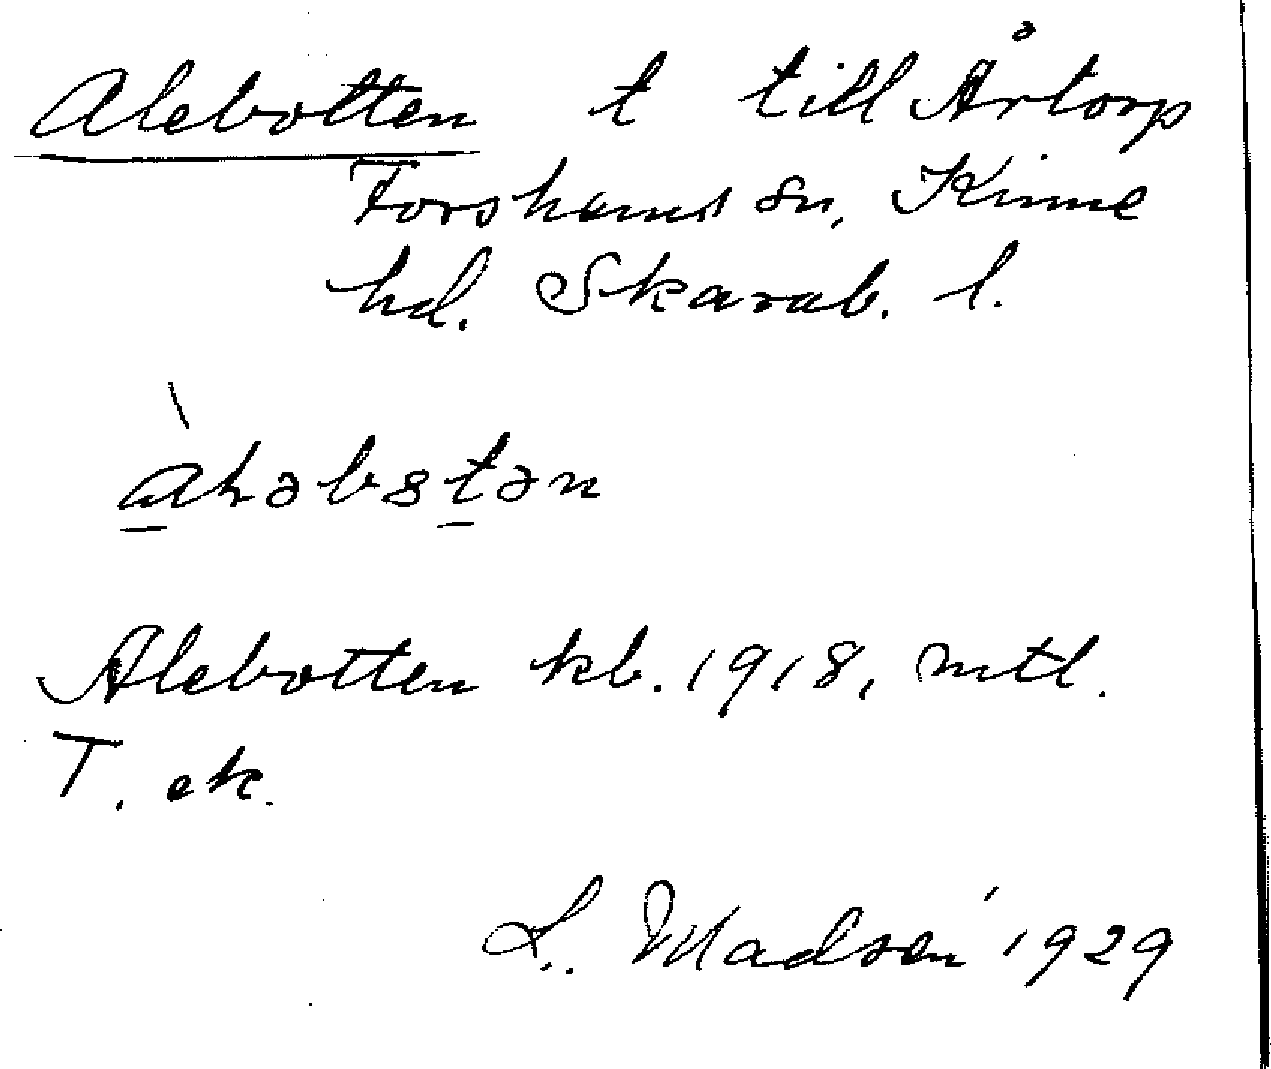 Alebotten t till Årtorp
Forshems sn, Kinne
hd. Skarab. l.
Alebotten kb. 1918, mtl.
T. ek.
L. Madsén 1929